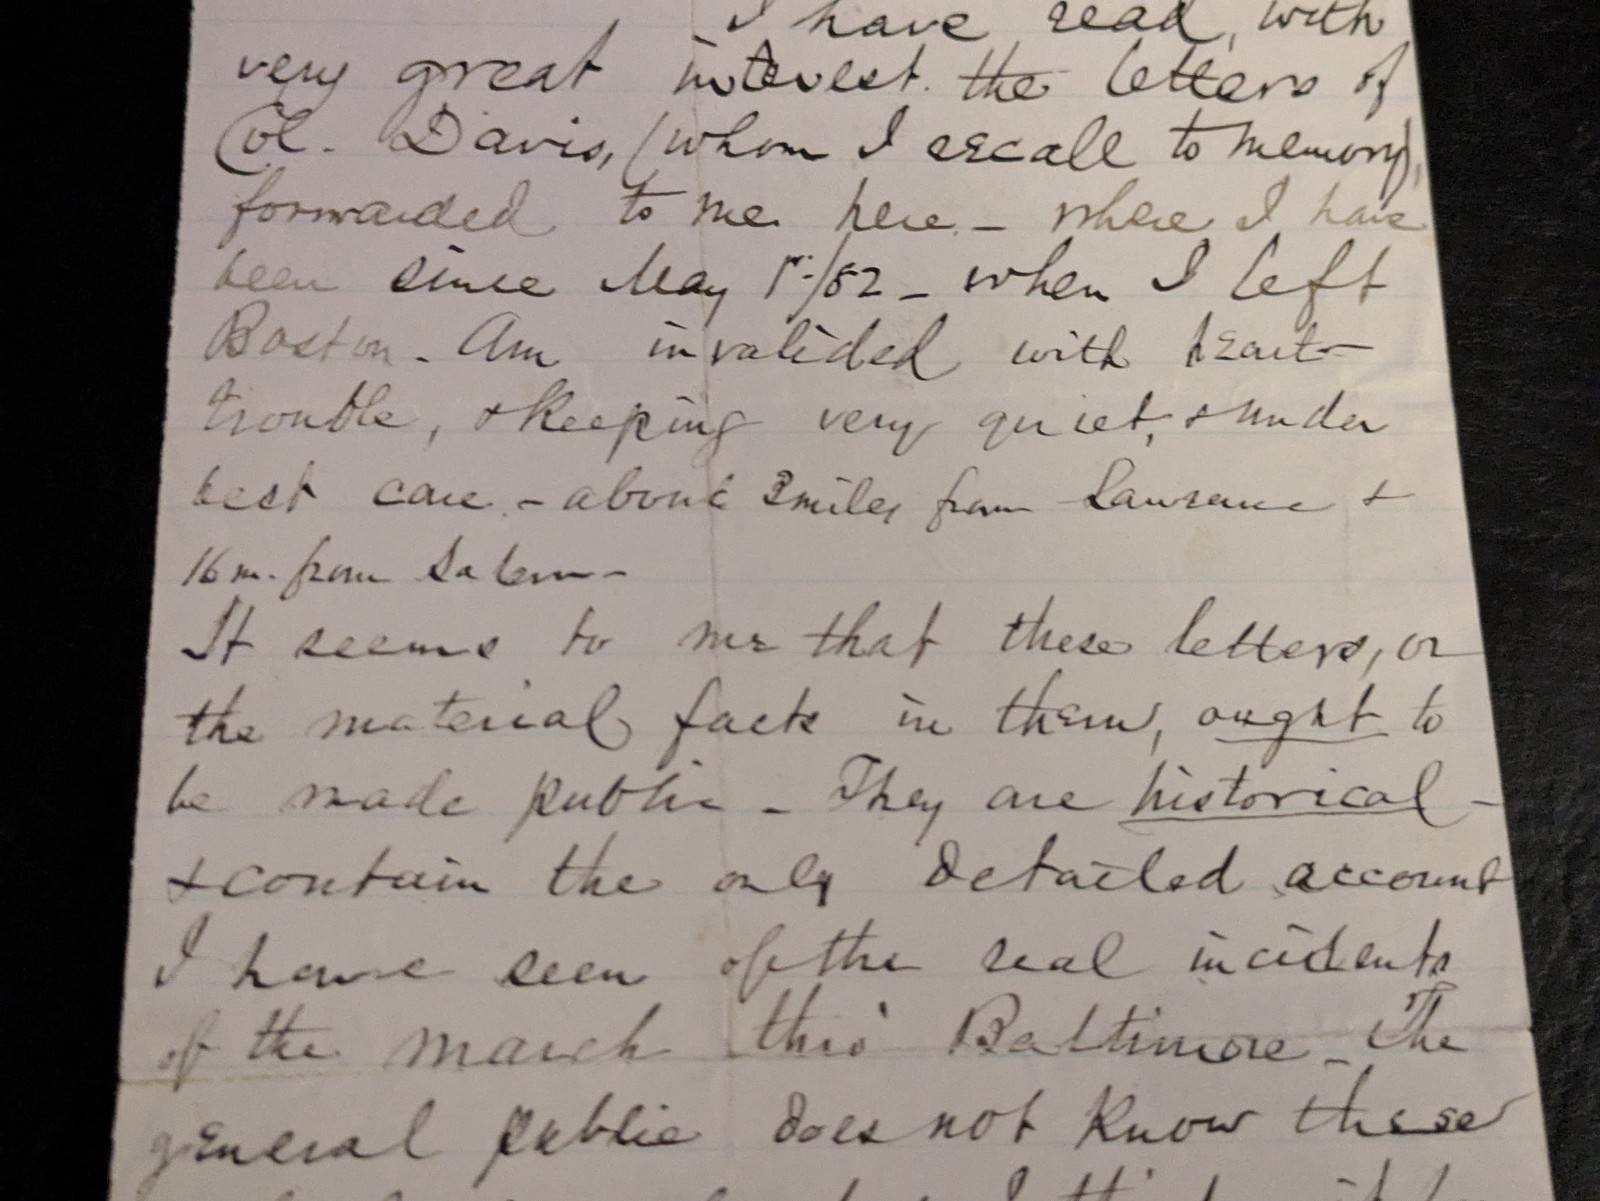 I have read, with
very great interest. the letters of
Col. Davis, (whom I recall to memory),
forwarded to me here. - where I have
been since May 1st/82 - when I left
Boston. Am invalided with heart-
trouble, & keeping very quiet, & under
best care. - about 3 miles from Lawrence &
16 m. from Salem -
It seems to me that these letters, or
the material facts in them, ought to
be made public - They are historical -
& contain the only detailed account
I have seen of the real incidents
of the march thro' Baltimore - The
general public does not know these